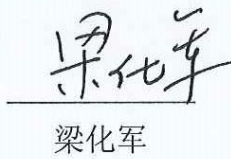 梁化军
梁化军